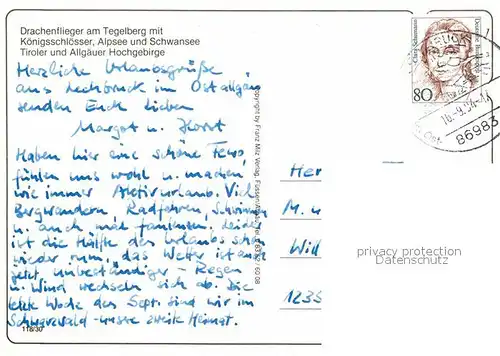 Drachenflieger am Tegelberg mit
Königsschlösser, Alpsee und Schwansee
Tiroler und Allgäuer Hochgebirge
Herzliche Urlaubsgrüße
aus Lechbruck im Ostallgäu
senden Euch lieben
Margot u. Horst
Haben hier eine schöne Fewo,
fühlen uns wohl u. machen
wie immer Aktivurlaub. Viel
Bergwandern, Radfahren, Schwimmen
u. auch mal faulenzen, leider
ist die Hälfte des Urlaubs schon
wieder rum, das Wetter ist auch
jetzt unbeständiger - Regen
u. Wind wechseln sich ab. Die
letzte Woche des Sept. sind wir im
Schwarzwald - unsere zweite Heimat.
118/30
Copyright by Franz Milz Verlag, Füssen
Her
M. u
Wil
1235
Clara Schumann
Deutsche Bundespost
80
86983
privacy protection
Datenschutz